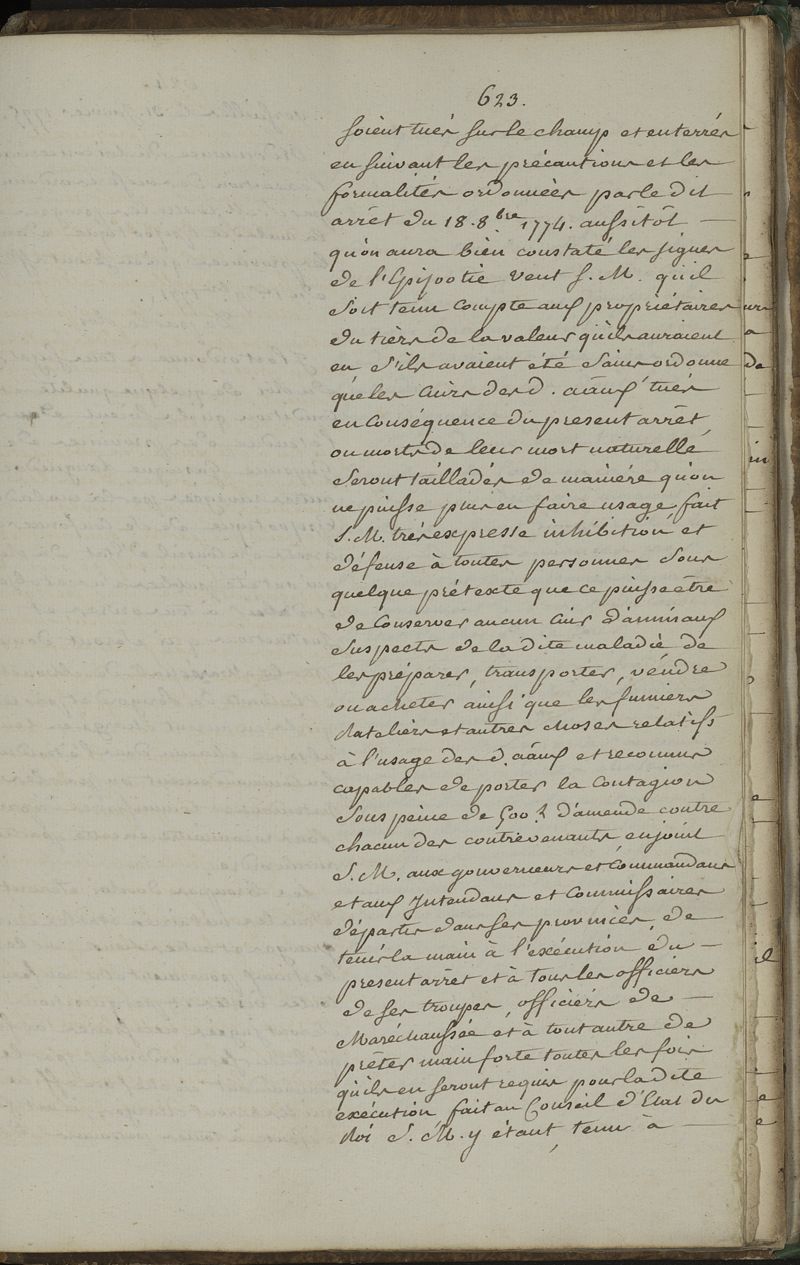 623.
soient tués sur le champ et enterrés
en suivant les précautions et les
formalités ordonnées par le dit
arrêt du 18. 8bre 1774. aussitôt —
qu'on aura bien constaté les signes
de l'Epizootie veut S. M. qu'il
soit tenu compte aux propriétaires
du tiers de la valeur qu'ils auraient
eu s'ils avaient été sains ordonne
que les Cuirs des d. aãux tués
en Conséquence du present arrêt
ou morts de leur mort naturelle
seront tailladés de maniére qu'on
ne puisse plus en faire usage, fait
S. M. trés expresse inhibition et
défense à toutes personnes sous
quelque prétexte que ce puisse être
de Conserver aucun Cuir d'animaux
suspects de la dite maladie, de
les préparer, transporter, véndre
ou acheter ainsi que les fumiers
rateliers et autres choses relatifs
à l'usage des d. aãux et reconnus
capables de porter la Contagion
sous peine de 500 ₶ d'amende contre
chacun des contrevenants, enjoint
S. M. aux gouverneurs et Commandans
et aux Intendans et Commissaires
départis dans ses provinces, de
tenir la main à l'exécution du —
present arrêt et à tous les officiers
de ses troupes, officiers de —
Maréchaussée et à tout autre de
prêter main forte toutes les fois
qu'ils en seront requis pour la dite
exécution fait au Conseil d'Etat du
Roi S. M. y étant, tenu à —